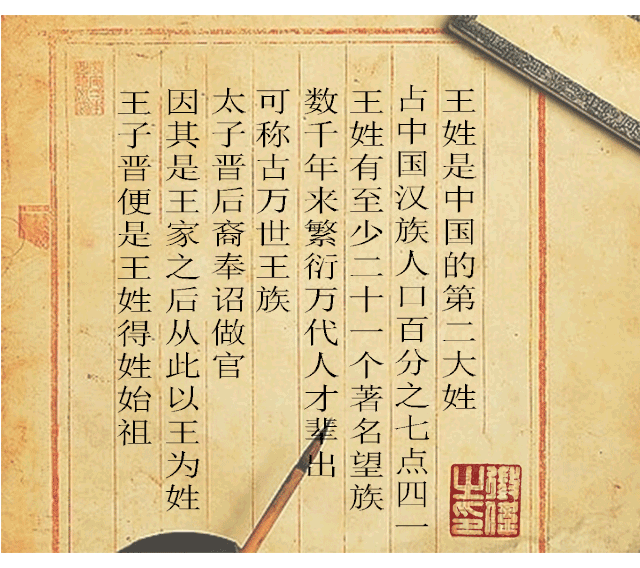 王姓是中国的第二大姓
占中国汉族人口百分之七点四一
王姓有至少二十一个著名望族
数千年来繁衍万代人才辈出
可称古万世王族
太子晋后裔奉诏做官
因其是王家之后从此以王为姓
王子晋便是王姓得姓始祖